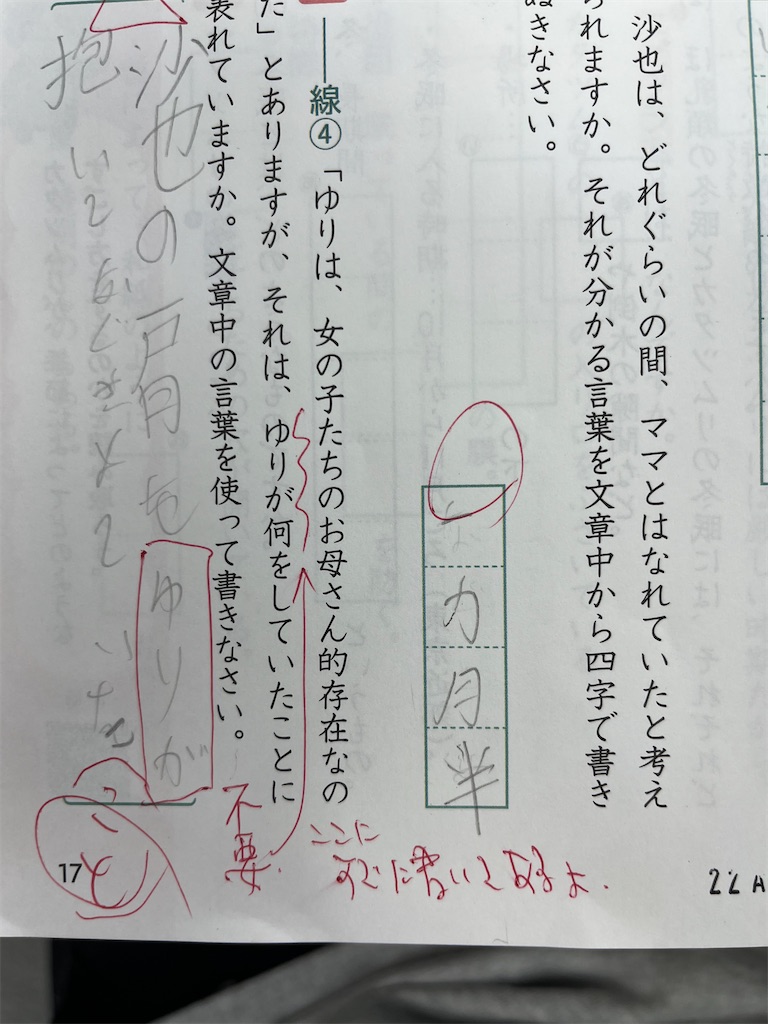 沙也は、どれぐらいの間、ママとはなれていたと考え
られますか。それが分かる言葉を文章中から四字で書き
ぬきなさい。
カ月半
線④「ゆりは、女の子たちのお母さん的存在なの
た」とありますが、それは、ゆりが何をしていたことに
表れていますか。文章中の言葉を使って書きなさい。
沙也の肩をゆりが
抱いてなぐさめていた
こと
不要.
ここに
すでに書いてあるよ.
17
22A